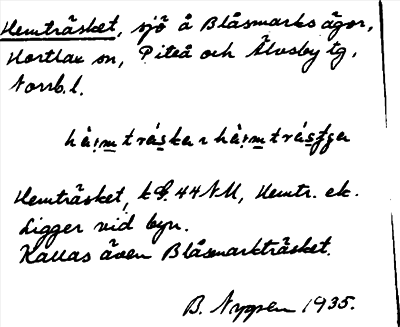 Hemträsket, sjö å Blåsmarks ägor,
Hortlax sn, Piteå och Älvsby tg,
Norrb. l.
Hemträsket, k bl. 44 NV, Hemtr. ek.
Ligger vid byn.
Kallas även Blåsmarkträsket.
B. Nygren 1935.